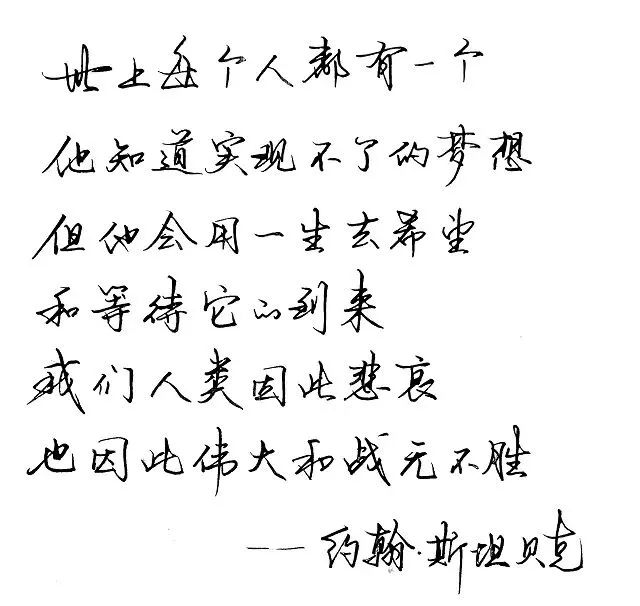 世上每个人都有一个
他知道实现不了的梦想
但他会用一生去希望
和等待它的到来
我们人类因此悲哀
也因此伟大和战无不胜
——约翰·斯坦贝克